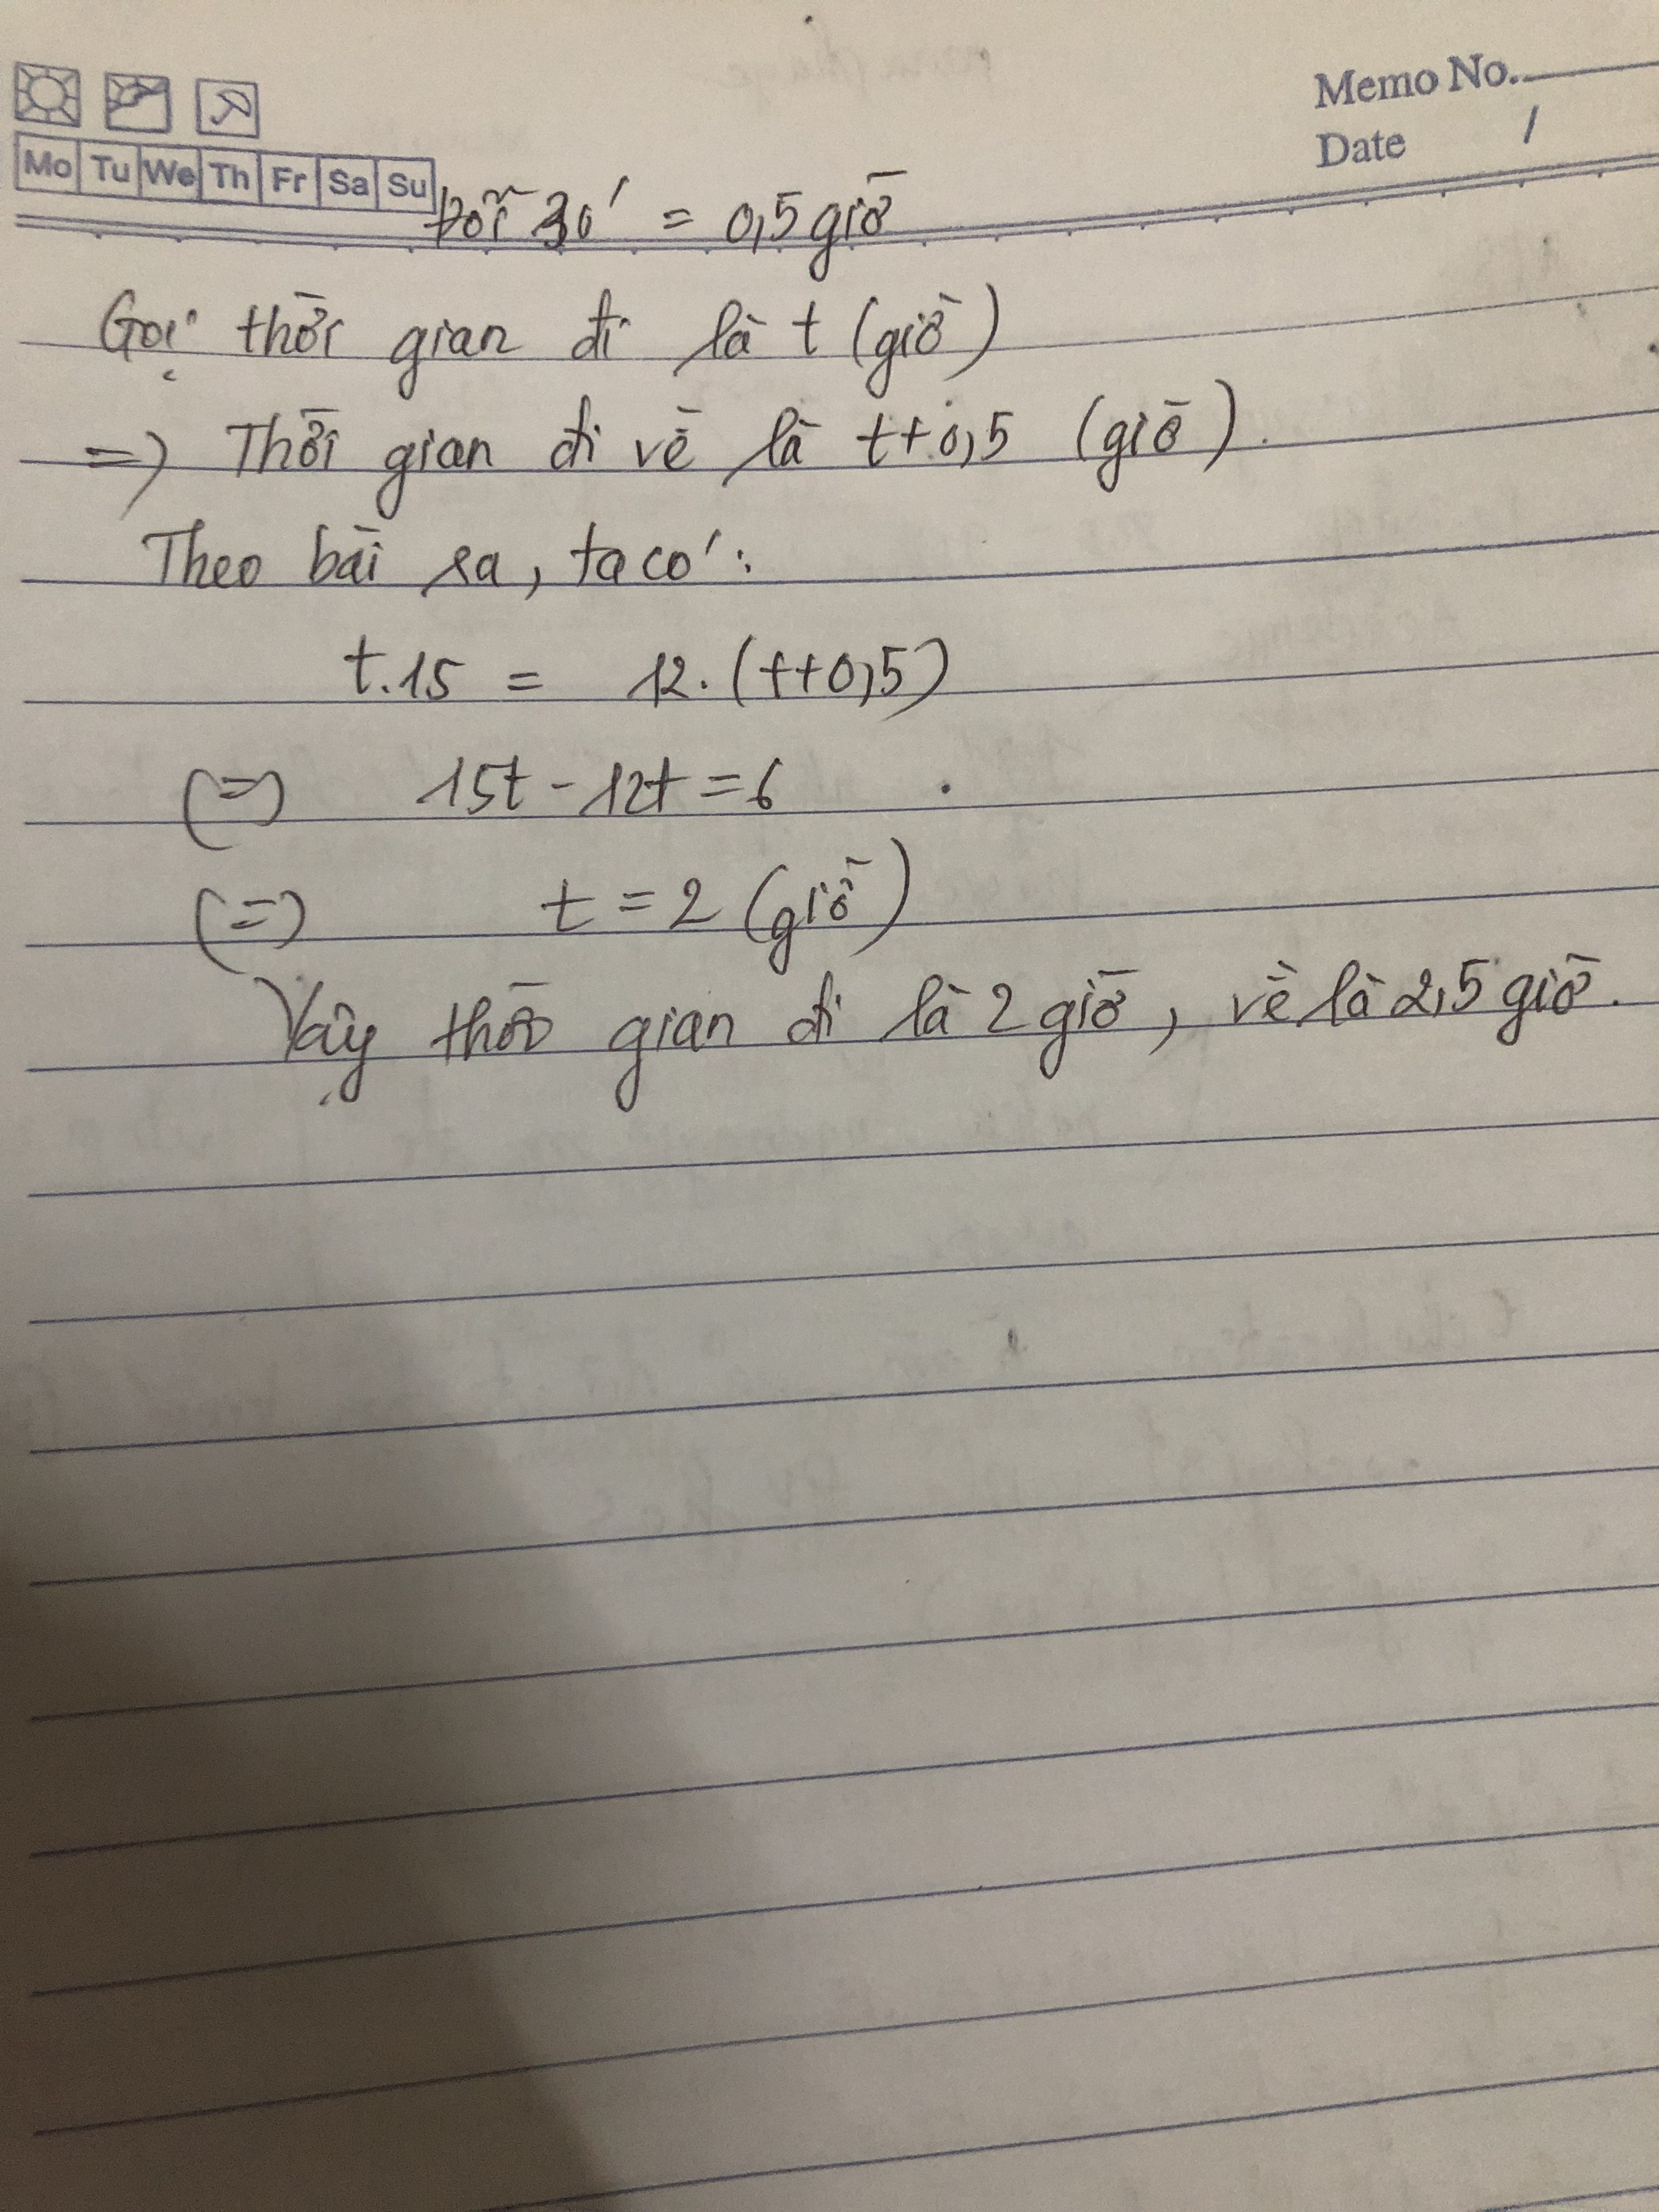 Memo No.
Date /
Mo Tu We Th Fr Sa Su
Đổi 30' = 0,5 giờ
Gọi thời gian đi là t (giờ)
=) Thời gian đi về là t+0,5 (giờ).
Theo bài ra, ta có:
t.15 = 12.(t+0,5)
(=) 15t - 12t = 6
(=) t = 2 (giờ)
Vậy thời gian đi là 2 giờ, về là 2,5 giờ.